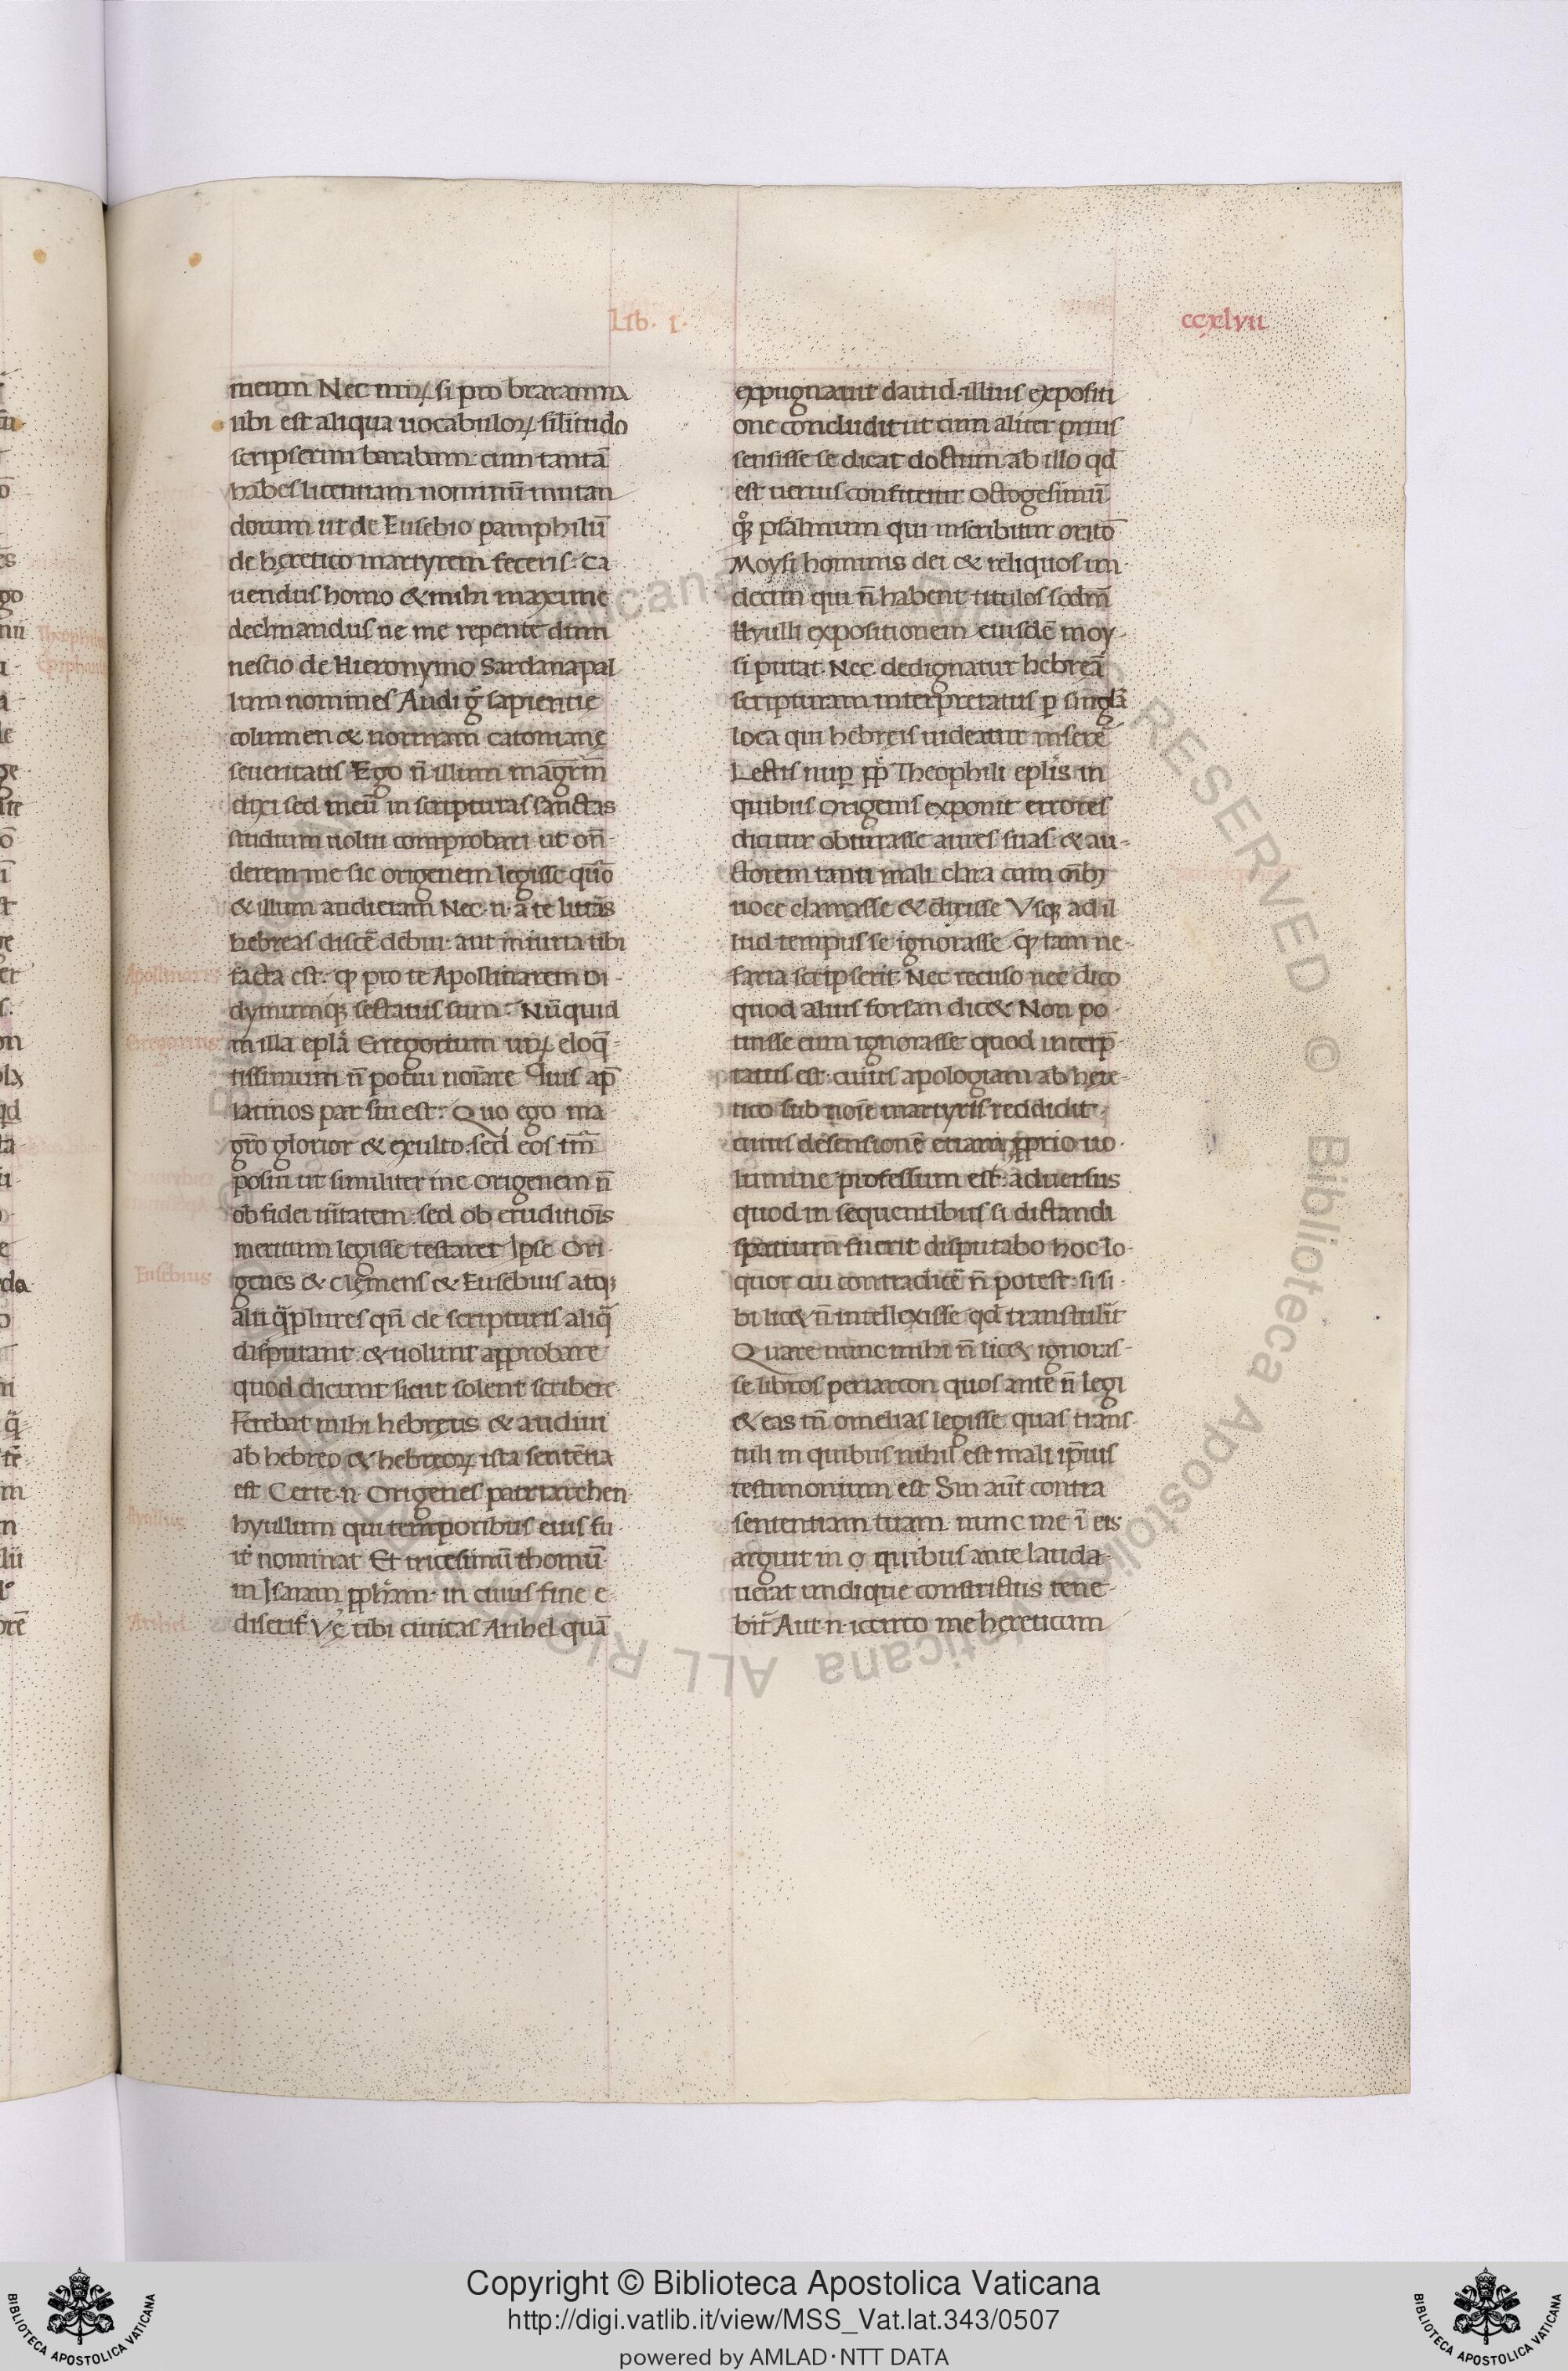 Lib. I.
ccxlvii
meum Nec miroꝝ si pro braranina
ubi est aliqua uocabuloꝝ silitudo
scripserim barabam cum tantā
habes licentiam nominū mutan
dorum ut de Eusebio pamphilū
de hęretico martyrem feceris. Ca
uendus homo & mihi maxime
declinandus ne me repente dum
nescio de Hieronymo Sardanapal
lum nomines Audi g̊ sapientię
columen & normam catonianę
seueritatis Ego n̄ illum magr̄m
dixi sed meū in scripturas sanctas
studium uolui comprobari ut on̄
derem me sic origenem legisse quō
& illum audieram Nec .n. a te litt̄as
hebreas discē debui. aut iniuria tibi
facta est. ꝙ pro te Apollinarem Di
dymumqꝫ sectatus sum. Nūquid
in illa epl̄a Gregorium uiꝝ eloq̄
tissimum n̄ potui noīare Quis ap̄
latinos par sui est. Quo ego ma
gr̄o glorior & exulto. sed eos tm̄
posui ut similiter me Origenem n̄
ob fidei uītatem. sed ob eruditiōis
meritum legisse testarer Ipse Ori
genes & clęmens & Eusebius atqꝫ
alii q̄plures qn̄ de scripturis aliq̄
disputant & uolunt approbare
quod dicunt sicut solent scribere
Ferebat mihi hebręus & audiui
ab hebręo & hebręoꝝ ista sentētia
est Certe .n. Origenes patriarchen
hyullum qui temporibus eius fu
it nominat Et tricesimū thomū
in Isaiam ꝓph̄am. in cuius fine e
diserit Vę tibi ciuitas Arihel quā
expugnauit dauid. illius expositi
one concludit ut cum aliter prius
sensisse se dicat doctum ab illo qd̄
est uerius confitetur Octogesimū
qꝫ psalmum qui inscribitur orītō
Moysi hominis dei & reliquos un
decim qui n̄ habent titulos scdm̄
Hyulli expositionem eiusdē moy
si putat. Nec dedignatur hebreā
scripturam interpretatus ꝑ singl̄a
loca qui hebręis uideatur inserē
Lectis nuꝑ ꝓꝓ Theophili epl̄is in
quibus Origenis exponit errores
dicitur obturasse aures suas & au
ctorem tanti mali clara cum oībꝫ
uoce clamasse & dixisse Vsqꝫ ad il
lud tempus se ignorasse ꝙ tam ne
faria scripserit. Nec recuso nec dico
quod alius forsan dic& Non po
tuisse eum ignorasse quod interp̄
tatus est. cuius apologiam ab here
tico sub noīe martyris reddidit.
cuius defensionē etiam ꝓprio uo
lumine professum est. aduersus
quod in sequentibus si dictandi
spatium fuerit disputabo hoc lo
quor cui contradicē n̄ potest. si si
bi lic& n̄ intellexisse qd̄ transtulit
Quare nunc mihi n̄ lic& ignoras
se libros periarcon quos ante n̄ legi
& eas tn̄ omelias legisse quas trans
tuli in quibus nihil est mali ip̄ius
testimonium est Sin aūt contra
sententiam tuam nunc me ī eis
arguit in quibus ante lauda
uerat undique constrictus tene
bit̄ Aut .n. iccirco me hereticum
Apollinaris
Gregorius
Eusebius
Hyullus
Arihel
Copyright © Biblioteca Apostolica Vaticana
http://digi.vatlib.it/view/MSS_Vat.lat.343/0507
powered by AMLAD·NTT DATA